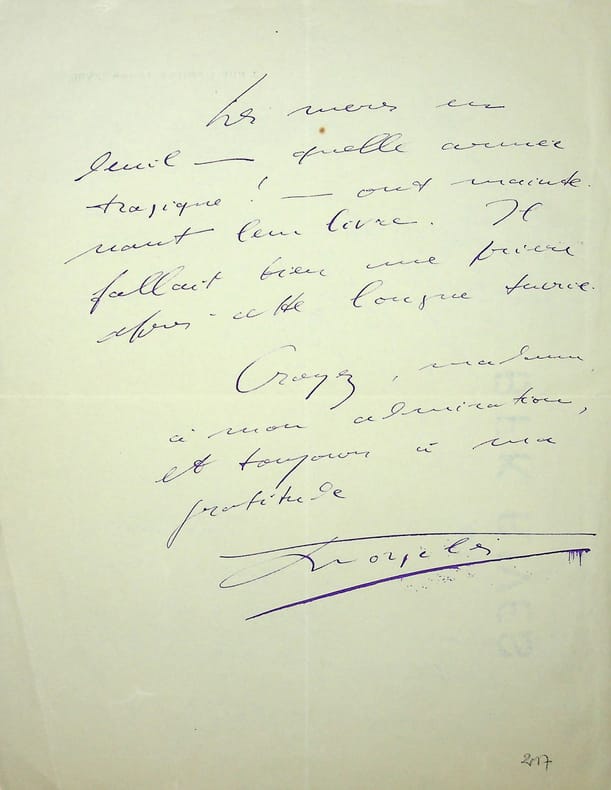 Les meres en
deuil — quelle armée
tragique ! — ont mainte-
nant leur livre. Il
fallait bien une prière
après cette longue tuerie.
Croyez, madame,
à mon admiration,
et toujours à ma
gratitude
Dorgelès
217